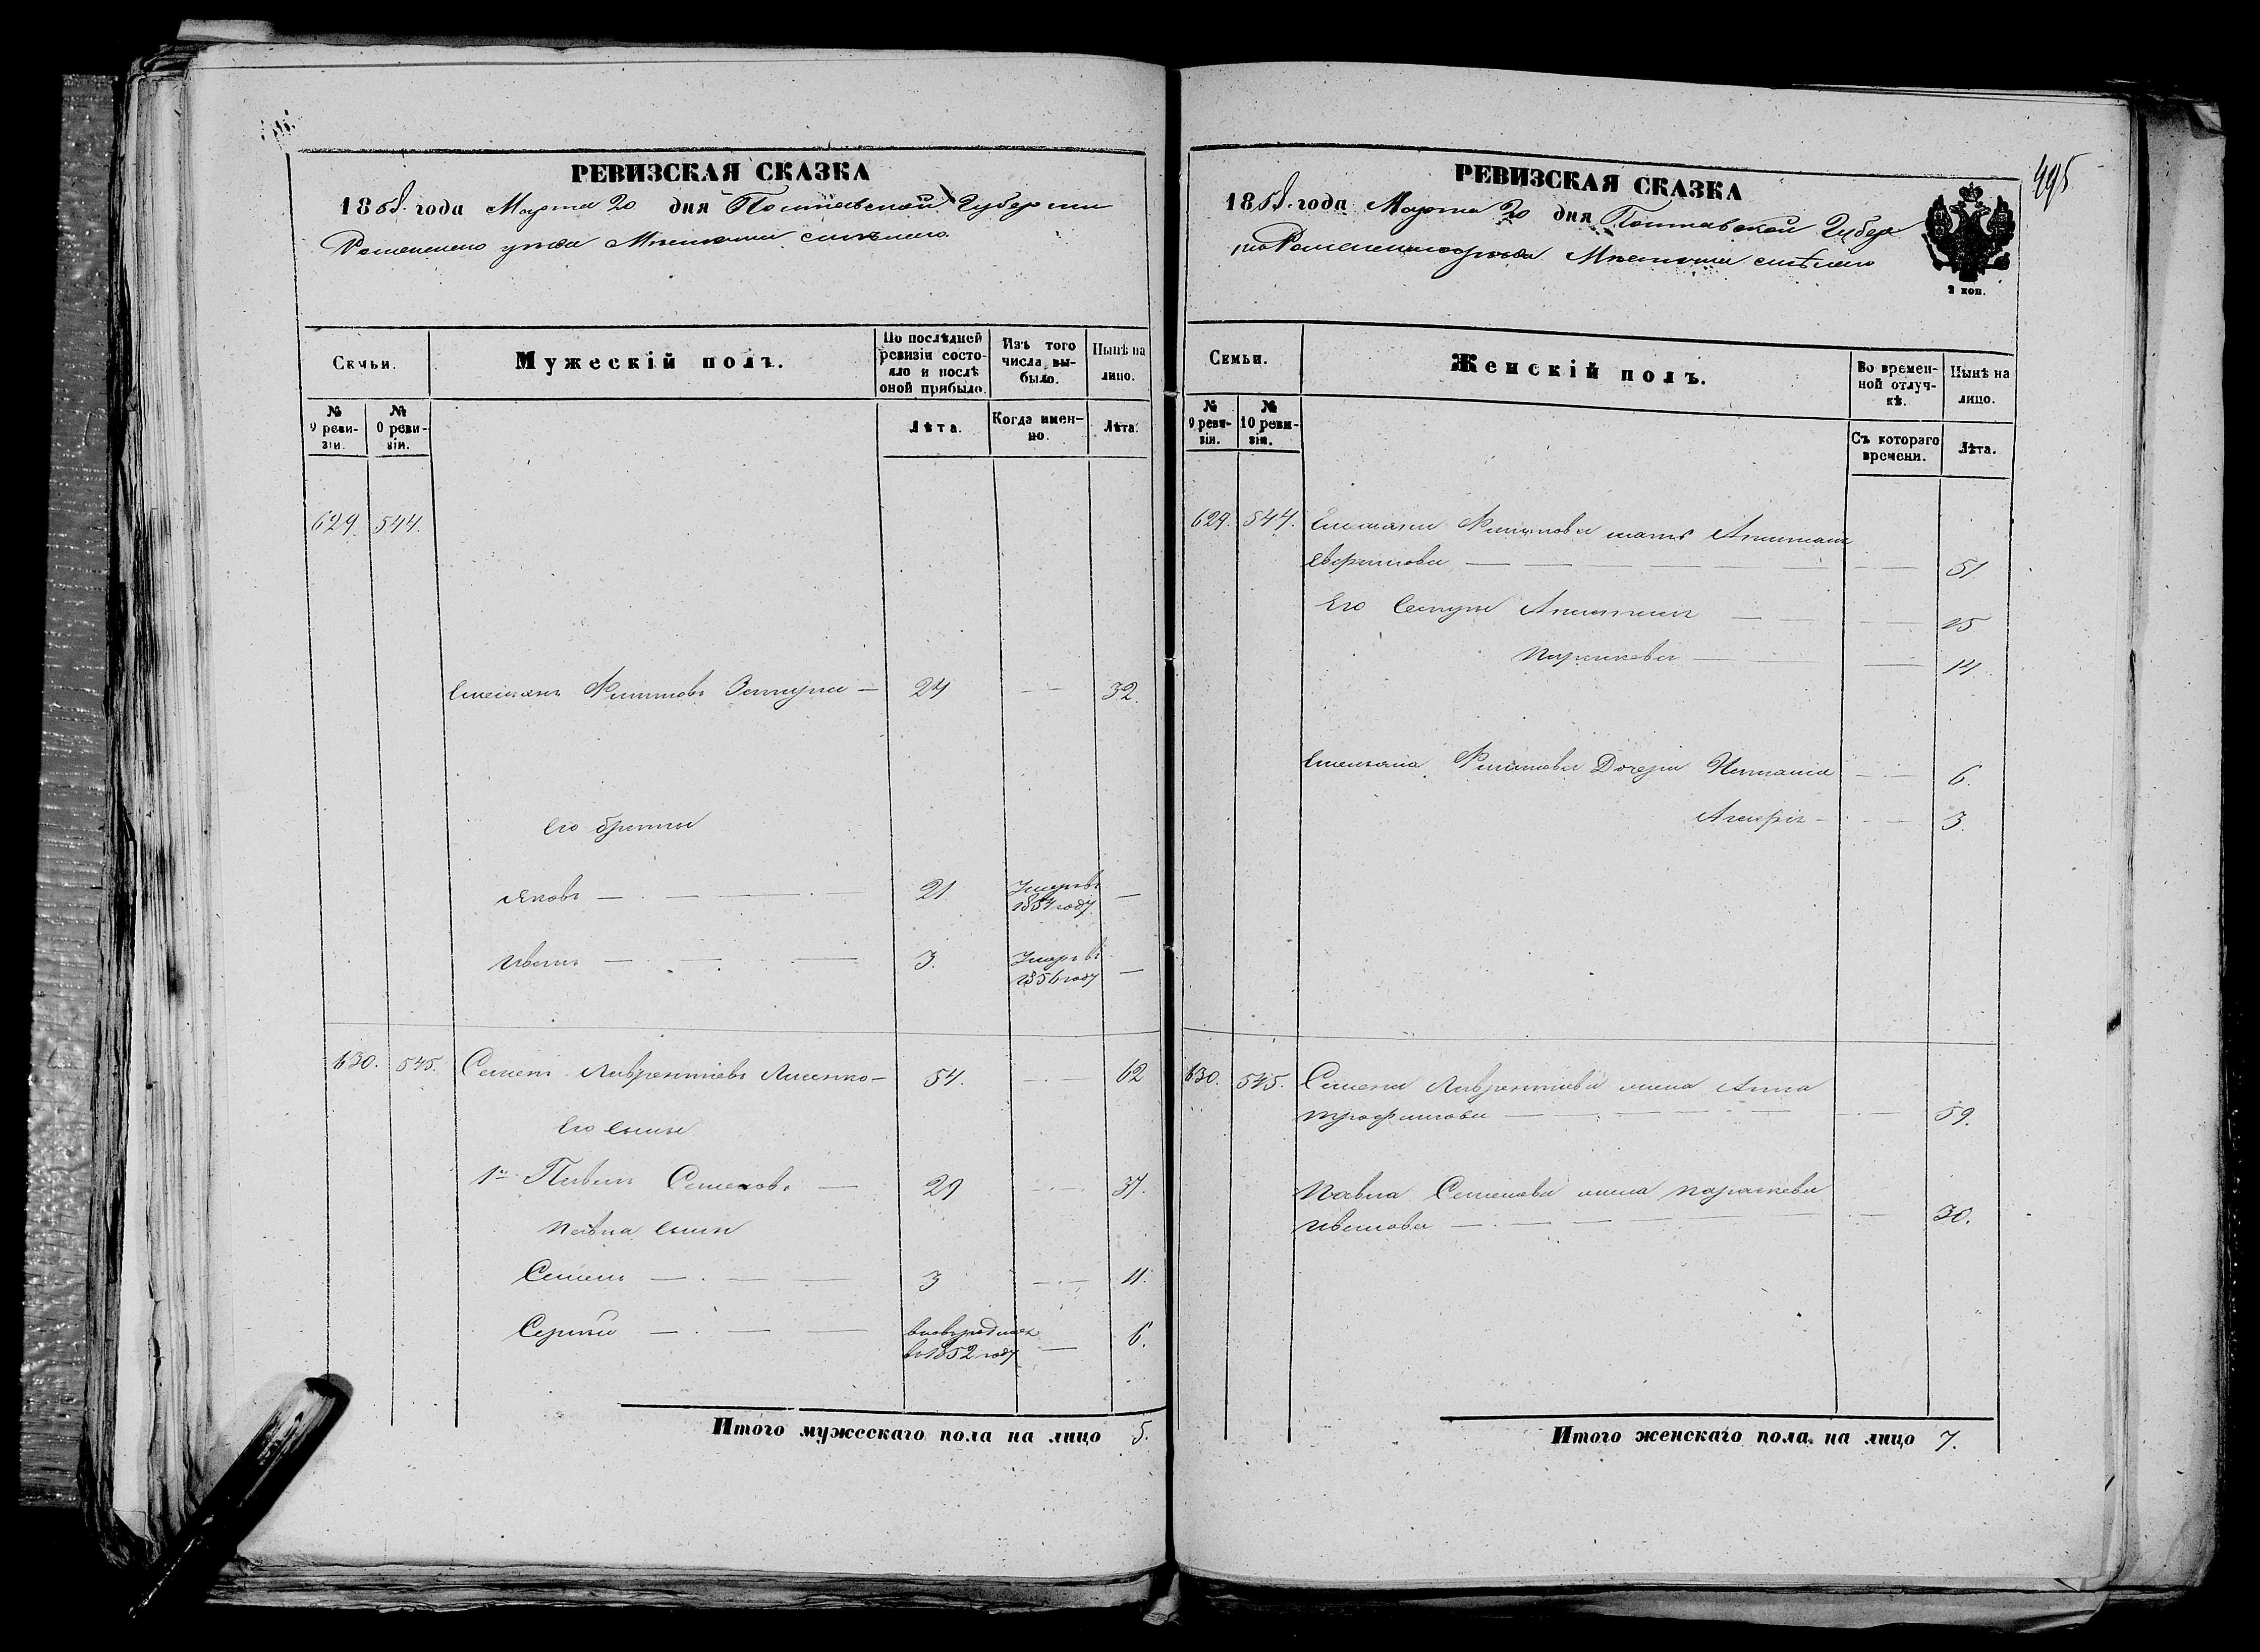 РЕВИЗСКАЯ СКАЗКА
1858 года Марта 20 дня Полтавской Губернии
Роменского уезда Местечка Смѣлого
Семьи.
Мужескій полъ.
По послѣдней ревизіи состояло и послѣ оной прибыло.
Изъ того числа выбыло.
Нынѣ на лицо.
№ 9 ревизіи.
№ 10 ревизіи.
Лѣта.
Когда именно.
Лѣта.
629. 544.
Емельянъ Филиповъ — 24 — 32.
Его братья
Яковъ — 21 Умеръ въ 1854 году —
Иванъ — 3. Умеръ въ 1856 году —
630. 545. Семенъ Лаврентіевъ Лисенко — 54. — 62
Его сыны
1й Павелъ Семеновъ — 29 — 37.
Павла сыны
Семенъ — 3 — 11.
Сергѣй — вновь рожден въ 1852 году — 6.
Итого мужескаго пола на лицо 5.
495
РЕВИЗСКАЯ СКАЗКА
1858 года Марта 20 дня Полтавской Губер
ніи Роменского уезда Местечка Смѣлого
2 коп.
Семьи.
Женскій полъ.
Во временной отлучкѣ.
Нынѣ на лицо.
№ 9 ревизіи.
№ 10 ревизіи.
Съ котораго времени.
Лѣта.
629. 544. Емельяна Филипова мать
Ефимова — 51
Его Сестры — 15
Параскева — 14
Емельяна Филипова Дочери Наталія — 6.
3.
630. 545. Семена Лаврентіева жена Анна
Трофимова — 59.
Павла Семенова жена Параскева
Иванова — 30.
Итого женскаго пола на лицо 7.